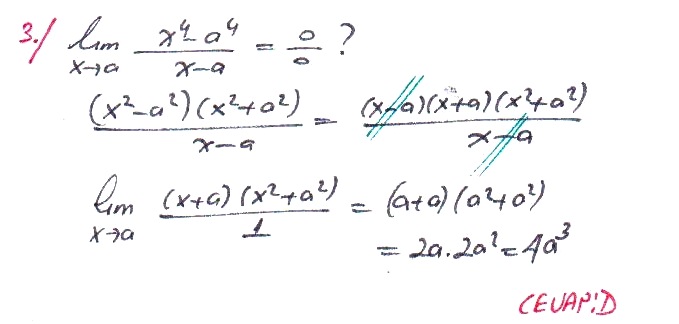 3./ lim x→a (x⁴-a⁴)/(x-a) = 0/0 ?
(x²-a²)(x²+a²)/(x-a) = (x-a)(x+a)(x²+a²)/(x-a)
lim x→a (x+a)(x²+a²)/1 = (a+a)(a²+a²)
= 2a.2a² = 4a³
CEVAP:D